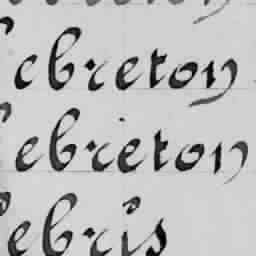 Lebreton
Lebrieton
Lebris